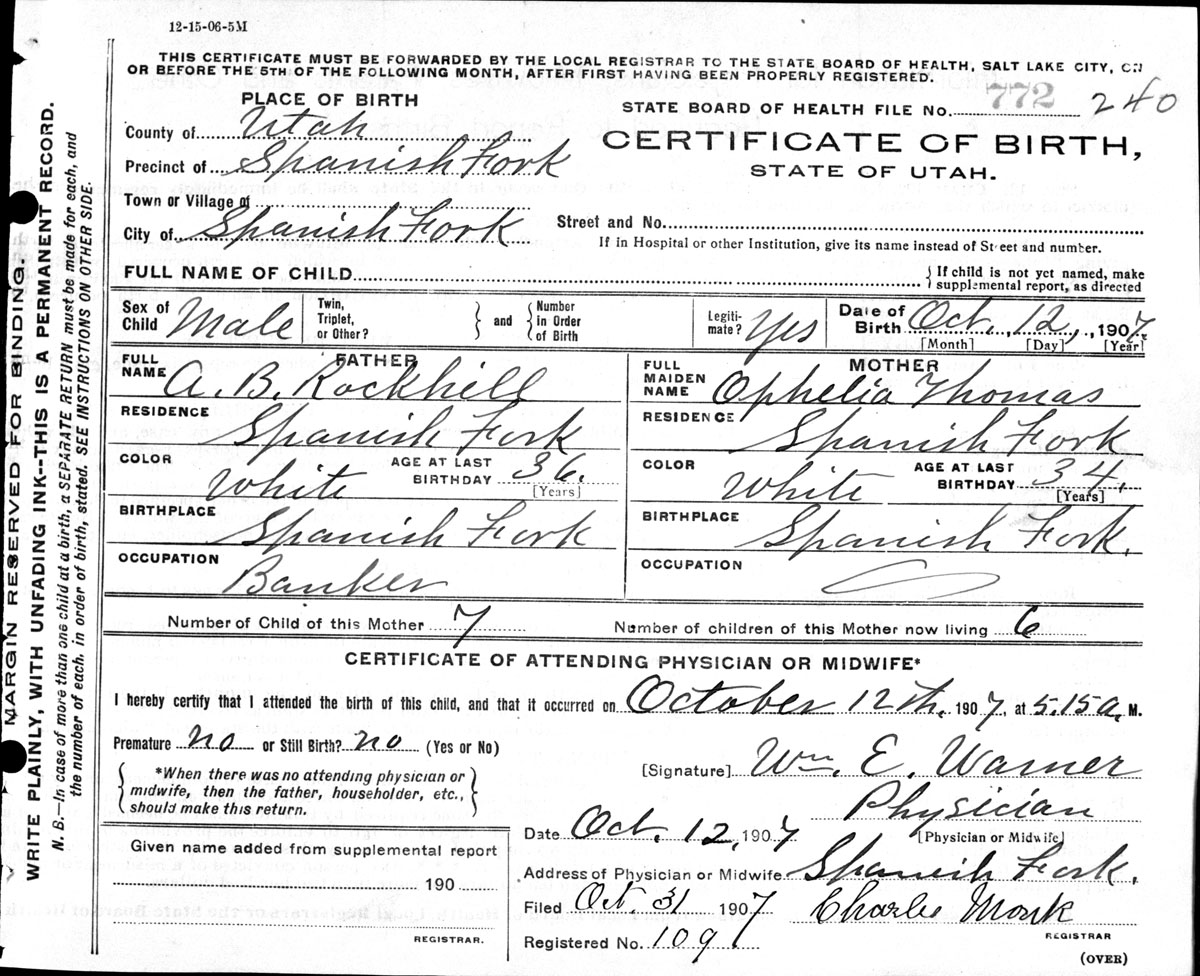 12-15-06-5M
THIS CERTIFICATE MUST BE FORWARDED BY THE LOCAL REGISTRAR TO THE STATE BOARD OF HEALTH, SALT LAKE CITY, ON
OR BEFORE THE 5TH OF THE FOLLOWING MONTH, AFTER FIRST HAVING BEEN PROPERLY REGISTERED.
PLACE OF BIRTH
County of Utah
Precinct of Spanish Fork
Town or Village of
City of Spanish Fork
STATE BOARD OF HEALTH FILE No. 772 240
CERTIFICATE OF BIRTH,
STATE OF UTAH.
Street and No.
If in Hospital or other Institution, give its name instead of Street and number.
FULL NAME OF CHILD
If child is not yet named, make
supplemental report, as directed
Sex of Child Male
Twin, Triplet, or Other?
and
Number in Order of Birth
Legiti-mate? Yes
Date of Birth Oct. 12, 1907
[Month] [Day] [Year]
FATHER
FULL NAME A. B. Rockhill
RESIDENCE Spanish Fork
COLOR White AGE AT LAST BIRTHDAY 36.
[Years]
BIRTHPLACE Spanish Fork
OCCUPATION Banker
MOTHER
FULL MAIDEN NAME Ophelia Thomas
RESIDENCE Spanish Fork
COLOR White AGE AT LAST BIRTHDAY 34.
[Years]
BIRTHPLACE Spanish Fork.
OCCUPATION
Number of Child of this Mother 7 Number of children of this Mother now living 6
CERTIFICATE OF ATTENDING PHYSICIAN OR MIDWIFE*
I hereby certify that I attended the birth of this child, and that it occurred on October 12th, 1907, at 5.15 a. M.
Premature no or Still Birth? no (Yes or No)
*When there was no attending physician or
midwife, then the father, householder, etc.,
should make this return.
[Signature] Wm. E. Warner
Physician
[Physician or Midwife]
Date Oct. 12, 1907
Given name added from supplemental report
190
REGISTRAR.
Address of Physician or Midwife Spanish Fork.
Filed Oct. 31 1907 Charles Monk
REGISTRAR
Registered No. 109
(OVER)
MARGIN RESERVED FOR BINDING.
WRITE PLAINLY, WITH UNFADING INK--THIS IS A PERMANENT RECORD.
N. B.--In case of more than one child at a birth, a SEPARATE RETURN must be made for each, and
the number of each, in order of birth, stated. SEE INSTRUCTIONS ON OTHER SIDE.